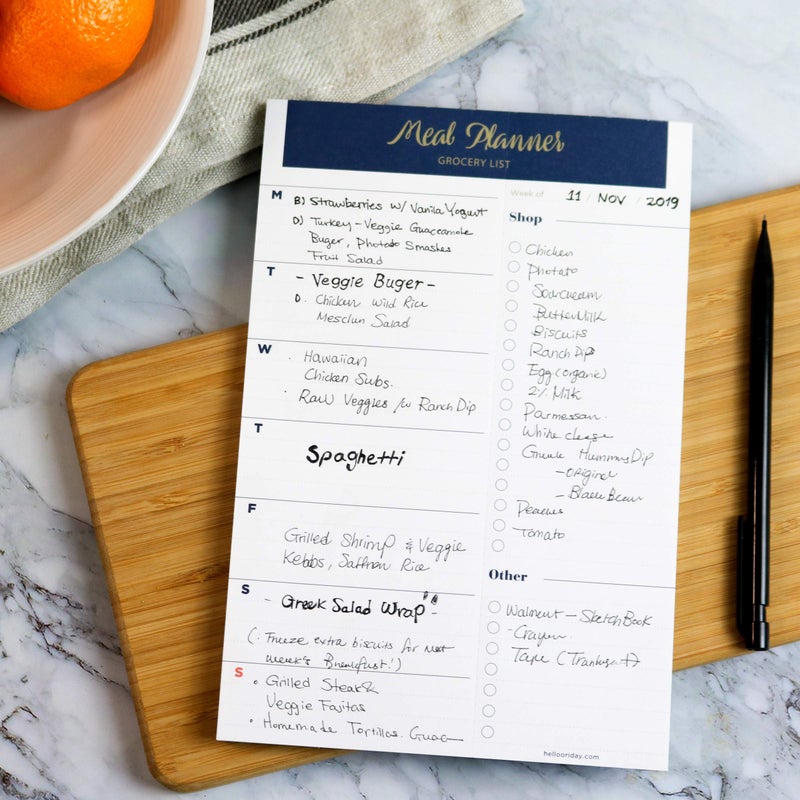 Meal Planner
GROCERY LIST
Week of 11 / NOV / 2019
M
B) Strawberries w/ Vanila Yogurt
D) Turkey - Veggie Guacamole
Buger, Photato Smashes
Fruit Salad
T
- Veggie Buger -
D. Chicken Wild Rice
Mesclun Salad
W
· Hawaiian
Chicken Subs.
· Raw Veggies /w Ranch Dip
T
Spaghetti
F
Grilled Shrimp & Veggie
Kebbs, Saffron Rice
S
- Greek Salad Wrap" -
(· Freeze extra biscuits for next
week's Breakfast!)
S
• Grilled Steak &
Veggie Fajitas
• Homemade Tortillas. Guac
Shop
Chicken
Photato
Sourcream
ButterMilk
Biscuits
Ranch Dip
Egg (organic)
2% Milk
Parmessan.
White cheese
Greek Hummus Dip
- Original
- Black Bean
Peaches
Tomato
Other
Walmart - SketchBook
- Crayon
Tape
hellooriday.com